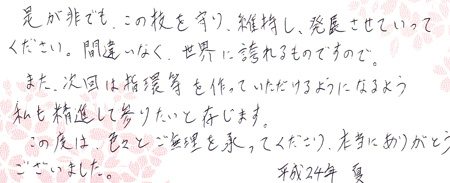 是が非でも、この技を守り、維持し、発展させていって
ください。間違いなく、世界に誇れるものですので。
また、次回は指環等を作っていただけるようになるよう
私も精進して参りたいと存じます。
この度は、色々とご無理を承ってくださり、本当にありがとう
ございました。
平成24年 夏